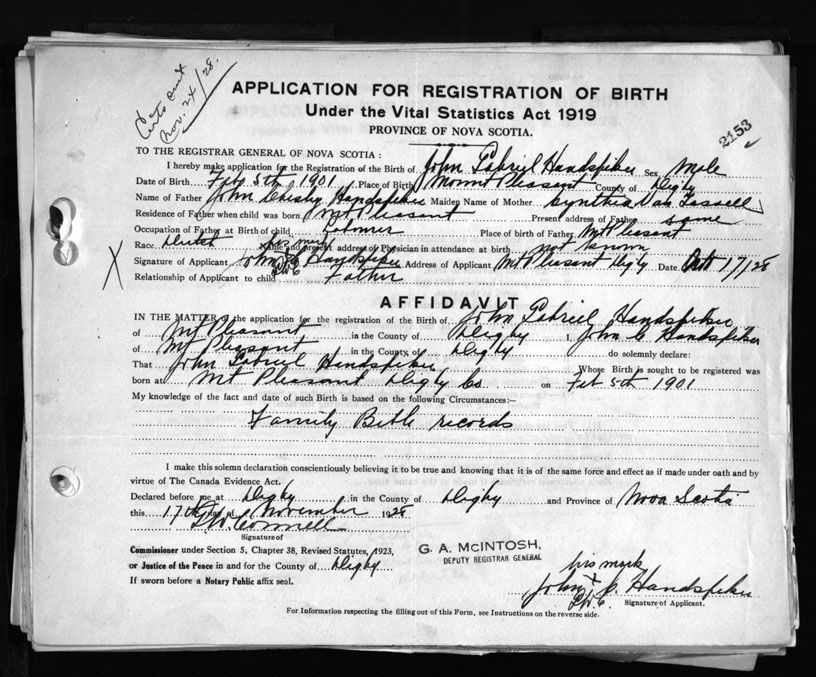 Certs out
Nov. 24/28.
APPLICATION FOR REGISTRATION OF BIRTH
Under the Vital Statistics Act 1919
PROVINCE OF NOVA SCOTIA.
2153
TO THE REGISTRAR GENERAL OF NOVA SCOTIA:
I hereby make application for the Registration of the Birth of John Gabriel Handspiker Sex Male
Date of Birth Feb 5th 1901 Place of Birth Mount Pleasant County of Digby
Name of Father John Handspiker Maiden Name of Mother Cynthia Van Tassell
Residence of Father when child was born Mt Pleasant Present address of Father same
Occupation of Father at Birth of child Labourer Place of birth of Father Mt Pleasant
Race Dutch Name and present address of Physician in attendance at birth not known
his mark
Signature of Applicant John Handspiker Address of Applicant Mt Pleasant Digby Date 17/28
Relationship of Applicant to child Father
X
AFFIDAVIT
IN THE MATTER of the application for the registration of the Birth of John Gabriel Handspiker
of Mt Pleasant in the County of Digby I, John C Handspiker
of Mt Pleasant in the County of Digby do solemnly declare:
That John Gabriel Handspiker Whose Birth is sought to be registered was
born at Mt Pleasant Digby Co on Feb 5th 1901
My knowledge of the fact and date of such Birth is based on the following Circumstances:—
Family Bible records
I make this solemn declaration conscientiously believing it to be true and knowing that it is of the same force and effect as if made under oath and by
virtue of The Canada Evidence Act.
Declared before me at Digby in the County of Digby and Province of Nova Scotia
this 17th day of November 1928
Signature of
Commissioner under Section 5, Chapter 38, Revised Statutes, 1923,
or Justice of the Peace in and for the County of Digby
If sworn before a Notary Public affix seal.
G. A. McINTOSH,
DEPUTY REGISTRAR GENERAL
his mark
John X Handspiker
Signature of Applicant.
For Information respecting the filling out of this Form, see Instructions on the reverse side.